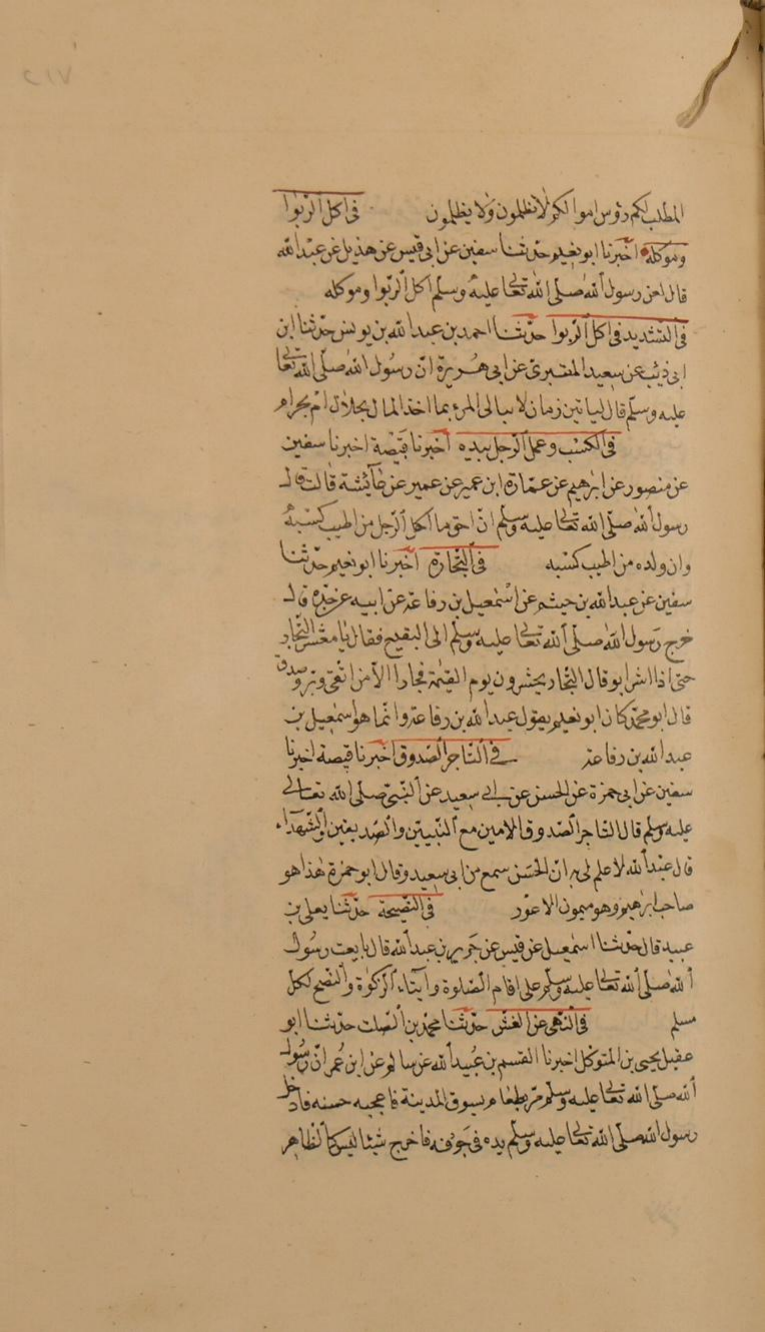 المطلب لكم رؤس اموالكم لا تظلمون ولا يظلمون في اكل الربوا
وموكله اخبرنا ابو نعيم حدثنا سفين عن ابي قيس عن هذيل عن عبد الله
قال لعن رسول الله صلى الله تعالى عليه وسلم اكل الربوا وموكله
في التشديد في اكل الربوا حدثنا احمد بن عبد الله بن يونس حدثنا ابن
ابي ذيب عن سعيد المقبري عن ابي هريرة ان رسول الله صلى الله تعالى
عليه وسلم قال لياتين زمان لا يبالي المرء بما اخذ المال بحلال ام بحرام
في الكسب وعمل الرجل بيده اخبرنا قبيصة اخبرنا سفين
عن منصور عن ابرهيم عن عمارة ابن عمير عن عمير عن عائشة قالت قال
رسول الله صلى الله تعالى عليه وسلم ان احق ما اكل الرجل من اطيب كسبه
وان ولده من اطيب كسبه في التجارة اخبرنا ابو نعيم حدثنا
سفين عن عبد الله بن خيثم عن اسمعيل بن رفاعة عن ابيه عن جده قال
خرج رسول الله صلى الله تعالى عليه وسلم الى البقيع فقال يا معشر التجار
حتى اذا اشرابوا قال التجار يحشرون يوم القيمة فجارا الا من اتقى وبر وصدق
قال ابو محمد كان ابو نعيم يقول عبد الله بن رفاعة وانما هو اسمعيل بن
عبد الله بن رفاعة في التاجر الصدوق اخبرنا قبيصة اخبرنا
سفين عن ابي حمزة عن الحسن عن ابي سعيد عن النبي صلى الله تعالى
عليه وسلم قال التاجر الصدوق الامين مع النبيين والصديقين والشهداء
قال عبد الله لا علم لي به ان الحسن سمع من ابي سعيد وقال ابو حمزة هذا هو
صاحب ابرهيم وهو ميمون الاعور في النصيحة حدثنا يعلى بن
عبيد قال حدثنا اسمعيل عن قيس عن جرير بن عبد الله قال بايعت رسول
الله صلى الله تعالى عليه وسلم على اقام الصلوة وايتاء الزكوة والنصح لكل
مسلم في النهي عن الغش حدثنا محمد بن الصلت حدثنا ابو
عقيل يحيى بن المتوكل اخبرنا القسم بن عبيد الله عن سالم عن ابن عمر ان رسول
الله صلى الله تعالى عليه وسلم مر بطعام بسوق المدينة فاعجبه حسنه فادخل
رسول الله صلى الله تعالى عليه وسلم يده في جوفه فاخرج شيئا ليس كالظاهر